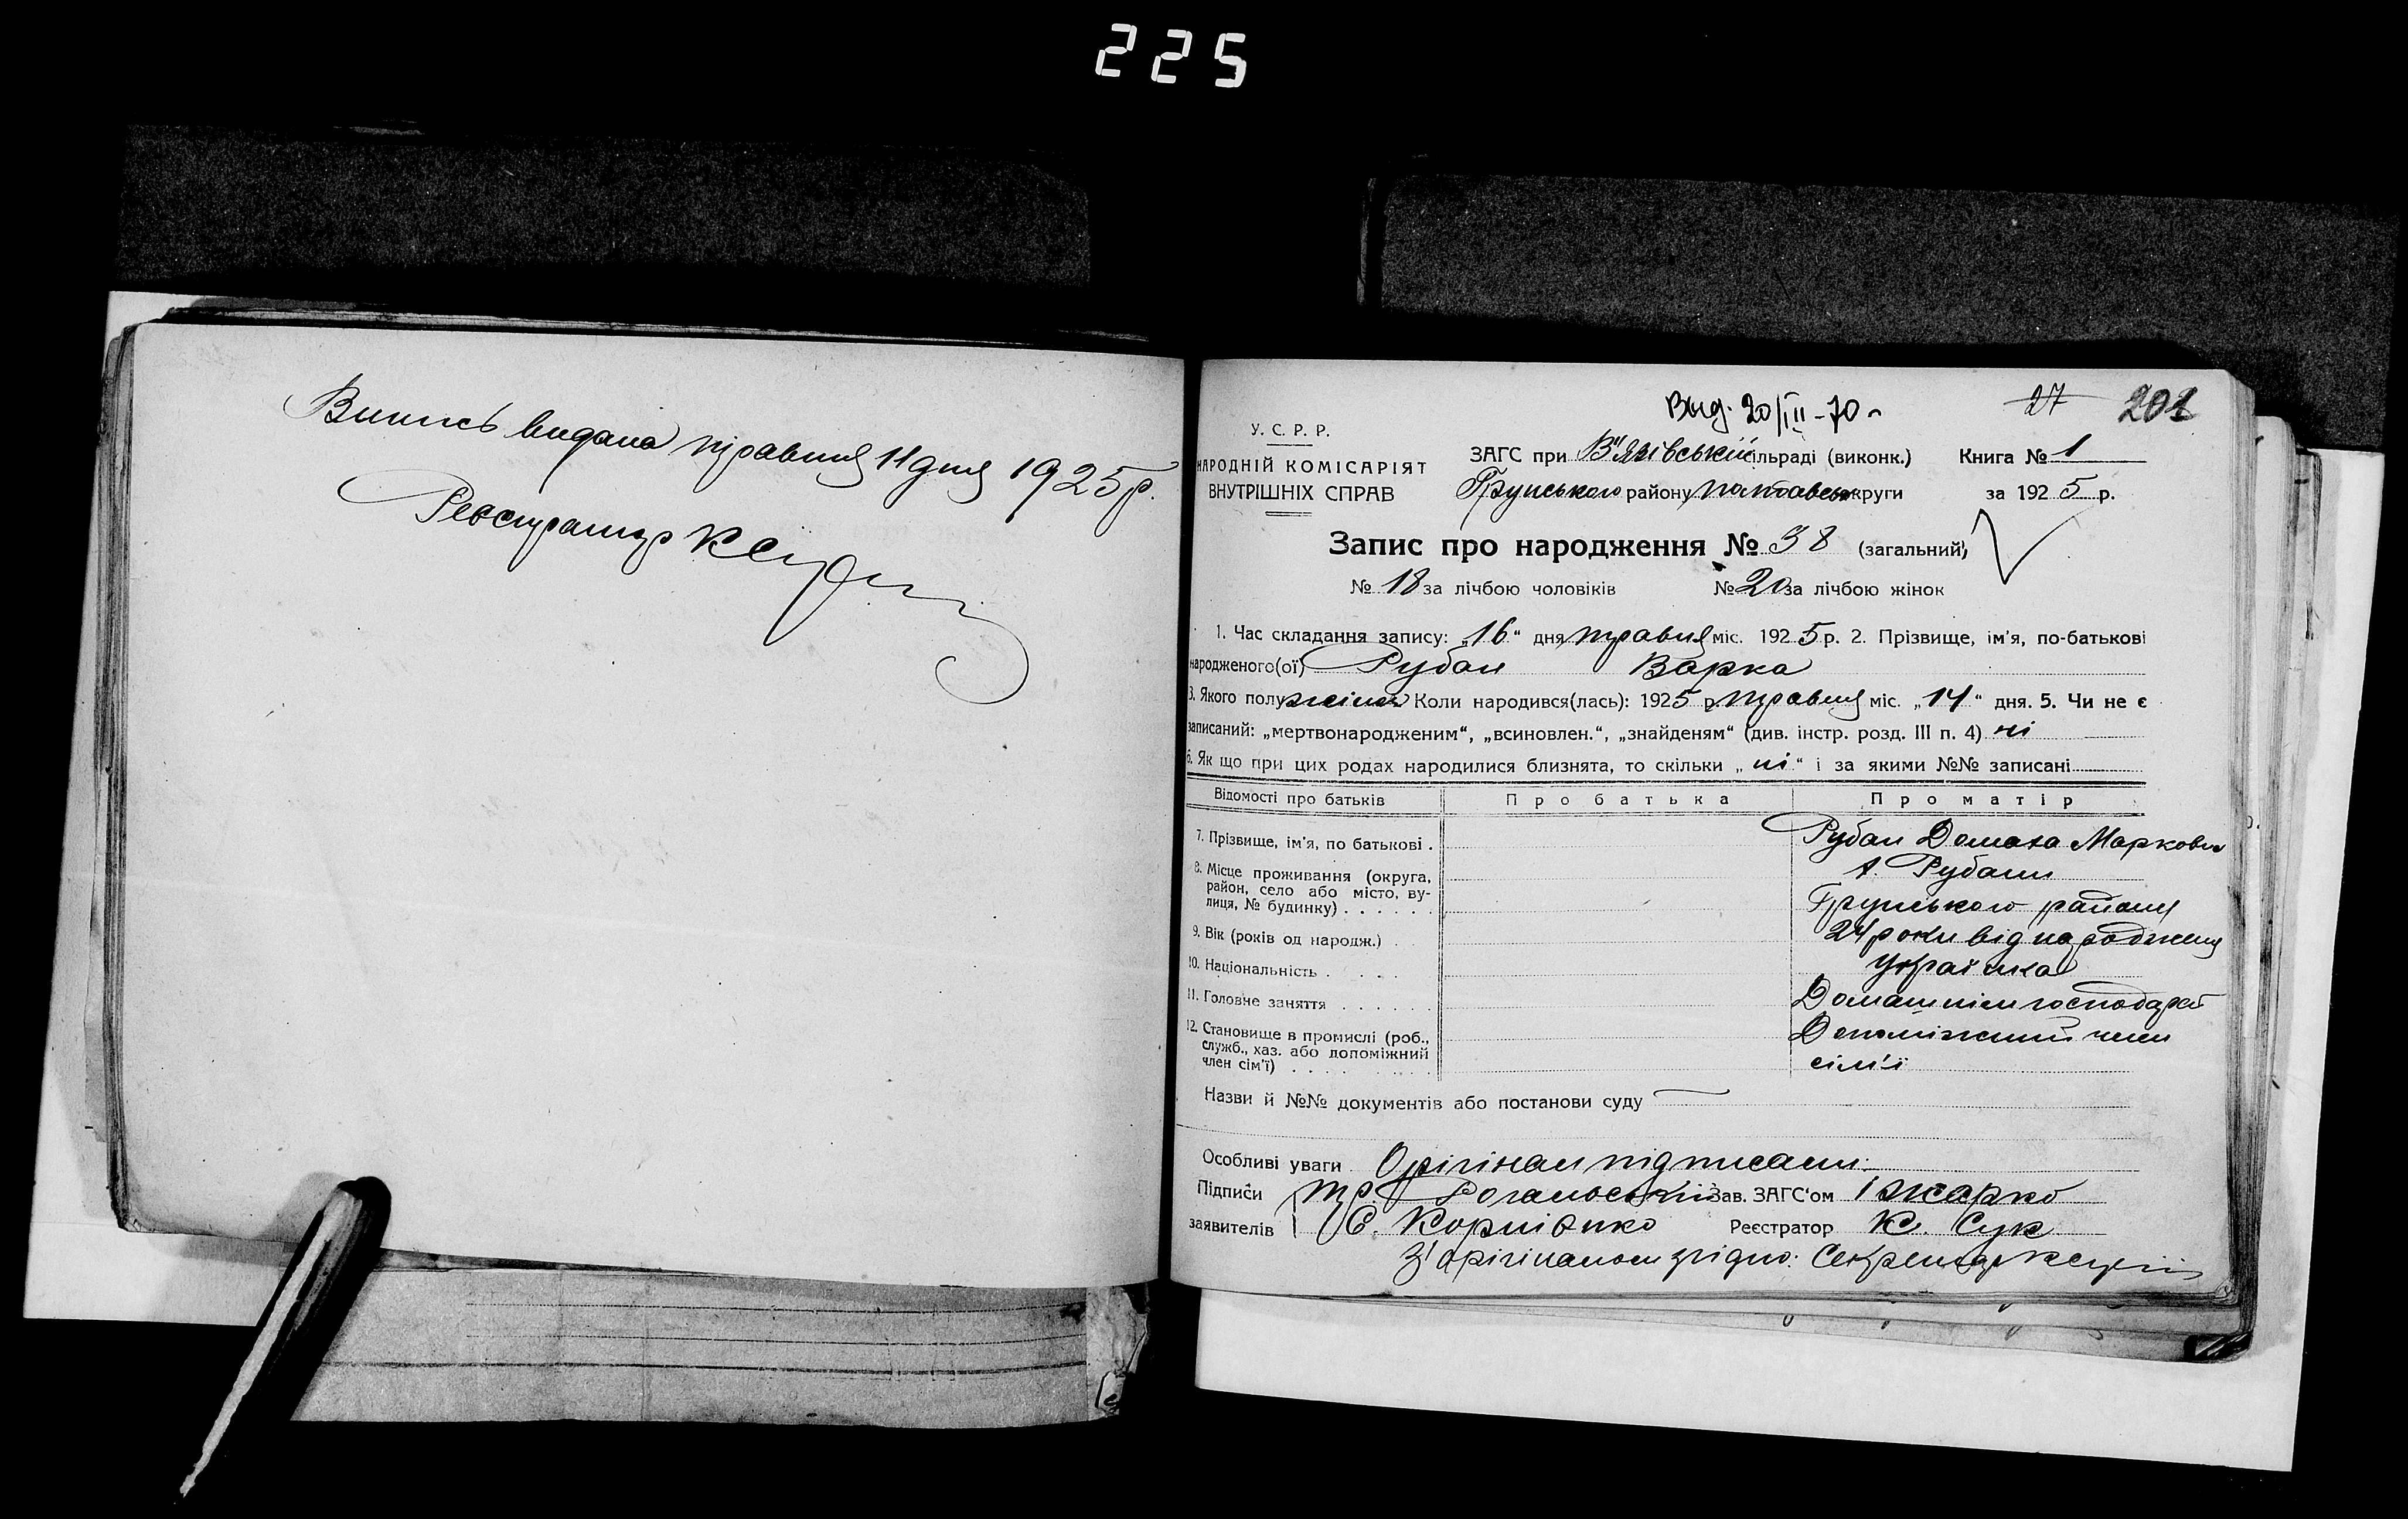 225
Выпись видана травня 11 дня 1925 р.
Реєстратор КСук
Выд. 20/III-70
27 202
У. С. Р. Р.
НАРОДНІЙ КОМІСАРІЯТ
ВНУТРІШНІХ СПРАВ
ЗАГС при В'язівській сільраді (виконк.) Книга № 1
Грунського району Полтавськ округи за 1925 р.
Запис про народження № 38 (загальний)
№ 18 за лічбою чоловіків № 20 за лічбою жінок
1. Час складання запису: „16“ дня травня міс. 1925 р. 2. Прізвище, ім'я, по-батькові
народженого(ої) Рубан Варка
3. Якого полу жіноч Коли народився(лась): 1925 р. травня міс. „14“ дня. 5. Чи не є
записаний: „мертвонародженим“, „всиновлен.“, „знайденям“ (див. інстр. розд. III п. 4) ні
6. Як що при цих родах народилися близнята, то скільки „ні“ і за якими №№ записані
Відомості про батьків Про батька Про матір
7. Прізвище, ім'я, по батькові . Рубан Домаха Марковн
8. Місце проживання (округа, район, село або місто, вулиця, № будинку) . . . . . . х. Рубани
Грунського району
9. Вік (років од народж.) . 24 роки від народження
10. Національність . . . . Українка
11. Головне заняття . . . . . . Домашнім господарст
12. Становище в промислі (роб., служб., хаз. або допоміжний член сім'ї) . . . . Допоміжний член
сім'ї
Назви й №№ документів або постанови суду
Особливі уваги Орігінал підписали:
Підписи Тр. Рогальський Зав. ЗАГС'ом І Жарко
заявителів Є. Корнієнко Реєстратор К. Сук
З орігіналом згідно: Секретар КСук